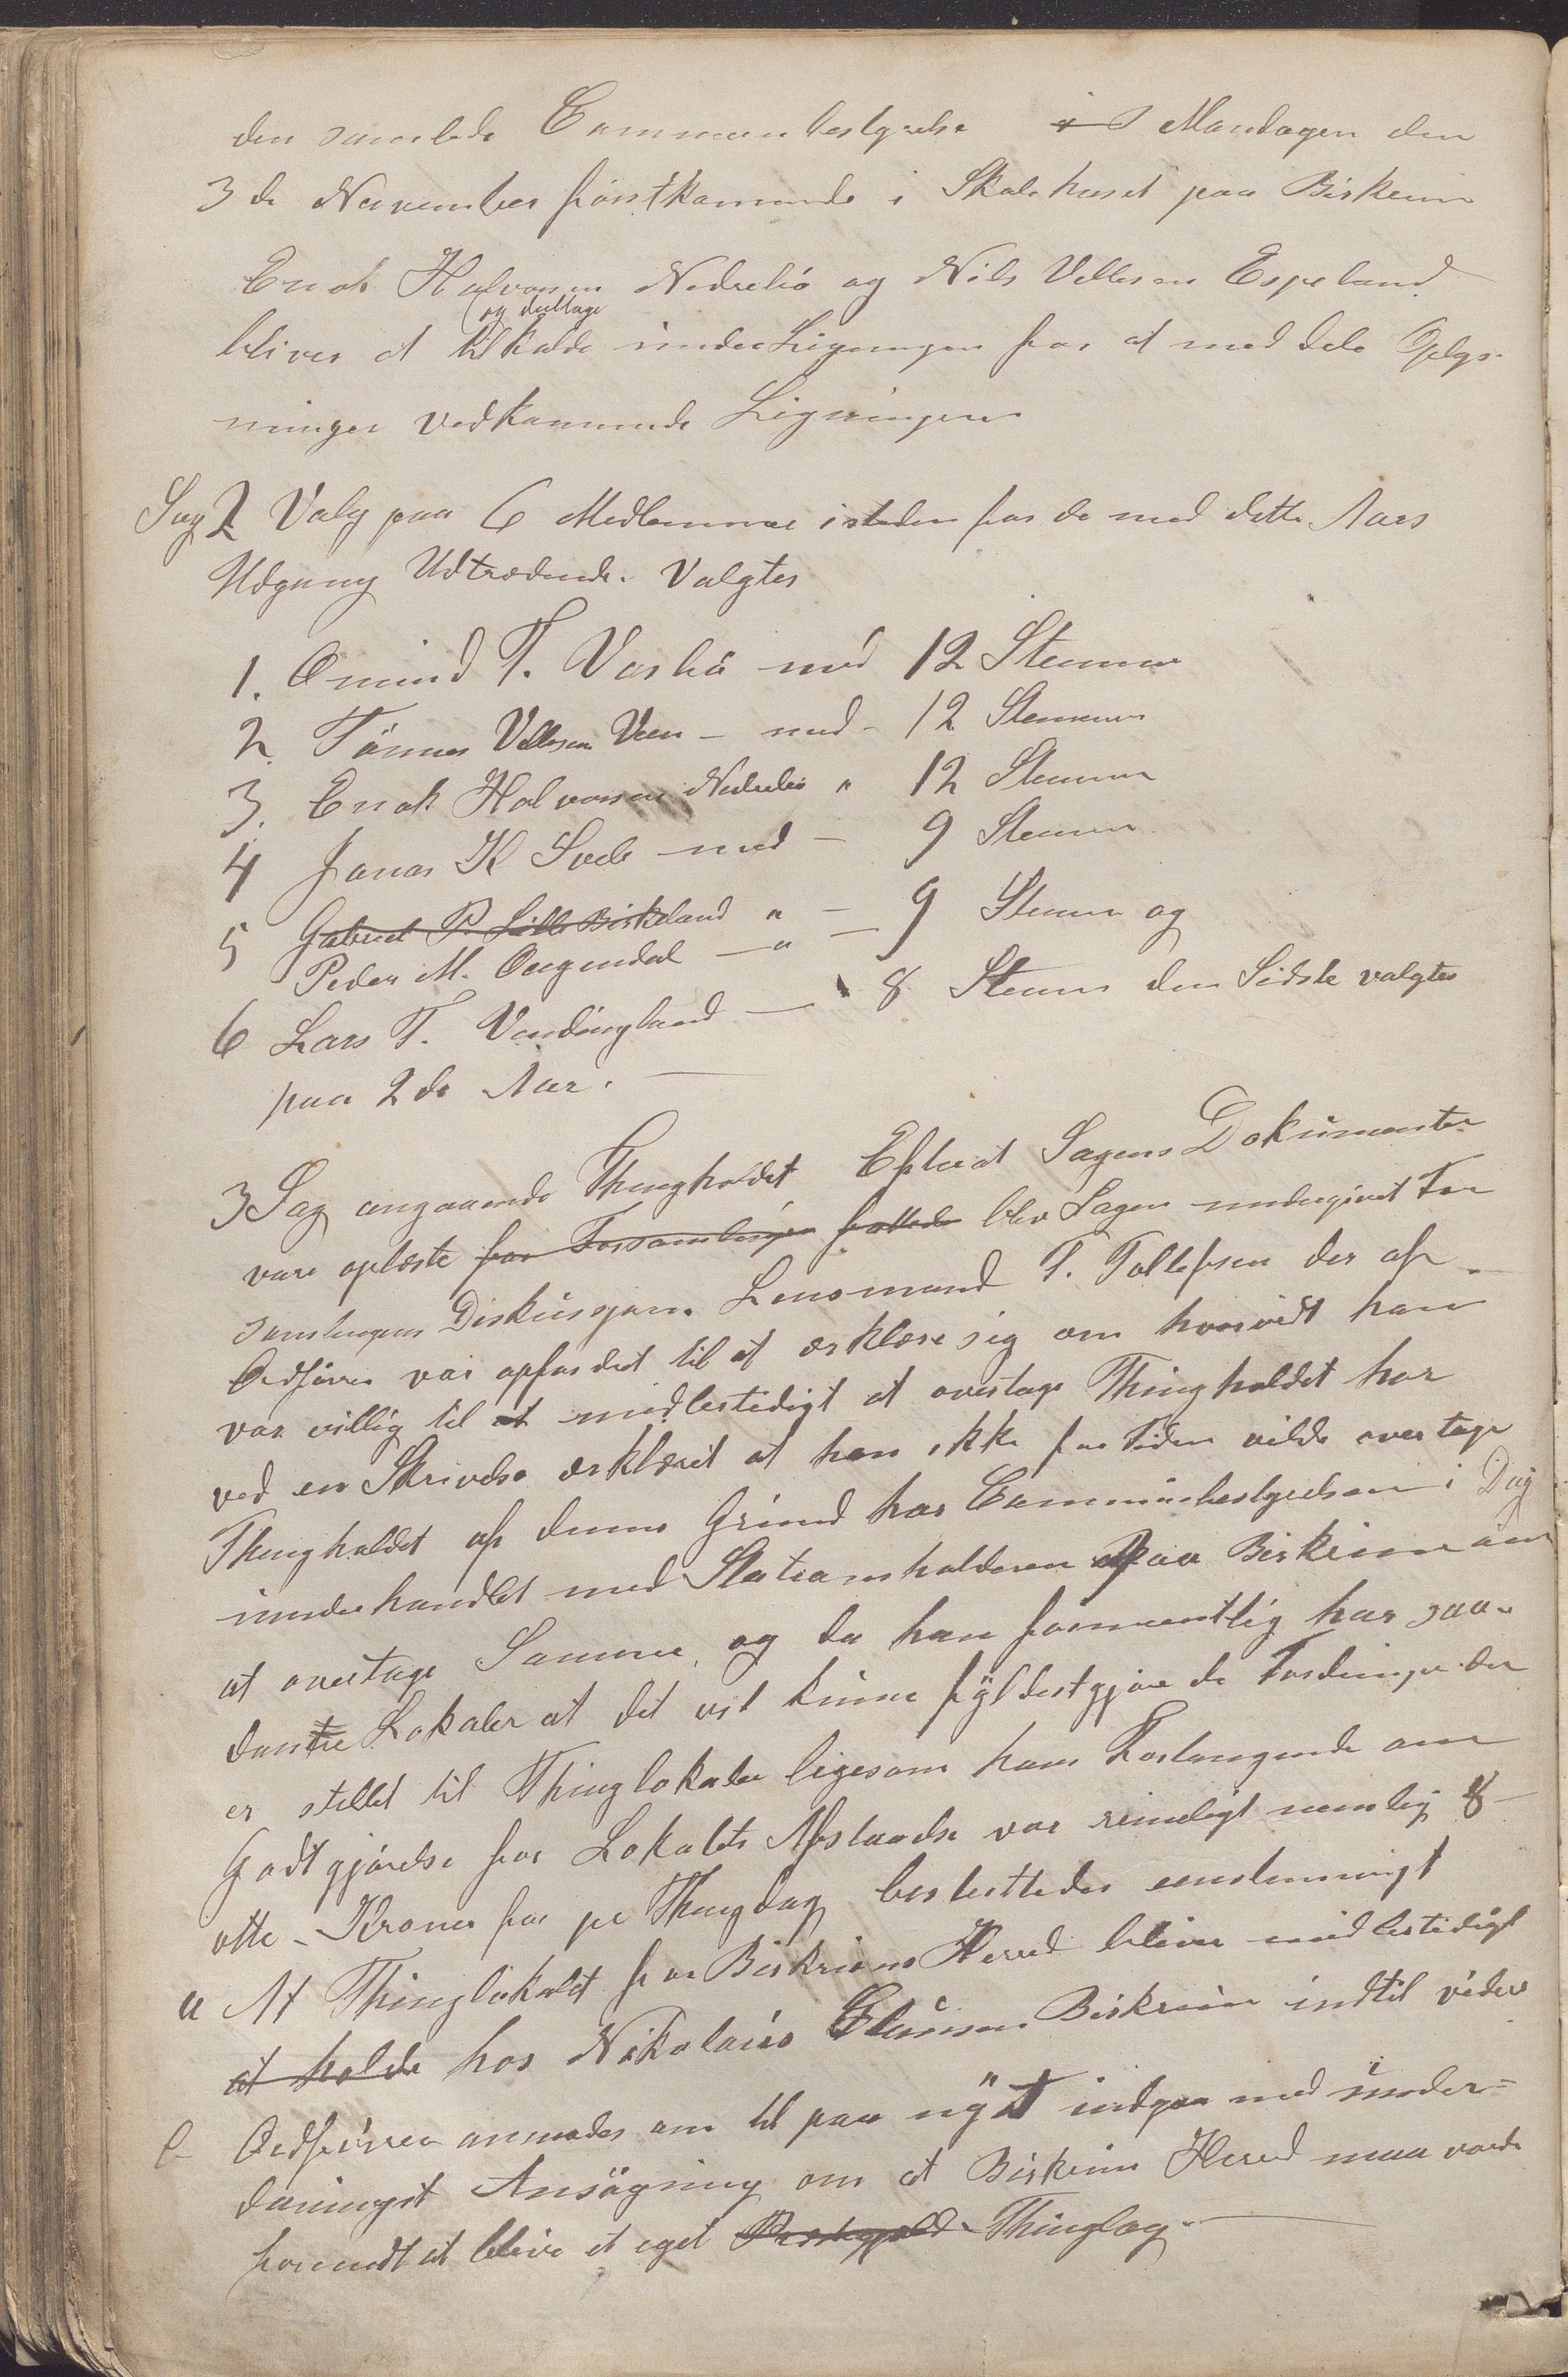 den samlede Communbestyrelse i Mandagen den
3de November förstkommende i Skolehuset paa Birkrim
Enok Halvorsen Nedrebö og Nils Vellesen Espeland
og deeltage
bliver at tilkalde under Ligningen for at meddele Oplys-
ninger vedkommende Ligningen
Sag 2 Valg paa 6 Medlemmer isteden for de med dette Aars
Udgang Udtrædende. Valgtes
1. Omund T. Vasbö med 12 Stemmer
2. Tönnes Vellesen Veen - med - 12 Stemmer
3. Enok Halvorsen Nedrebö " 12 Stemmer
4 Jonas K Svele med - 9 Stemmer
5 Gabriel P. Lille Birkeland " - 9 Stemmer og
Peder M. Oregendal - " -
6 Lars T. Vandingland - 8 Stemmer den Sidste valgtes
paa 2de Aar.
3 Sag angaaende Thingholdet Efterat Sagens Dokumenter
vare oplæste for Forsamlingen fattede blev Sagen undergivet For
samlingens Diskusjon. Lensmand T. Tollefsen der af
Ordförer var opfordret til at erklære sig om hvorvidt han
var villig til at midlertidigt at overtage Thingholdet har
ved en Skrivelse erklæret at han ikke for Tiden vilde overtage
Thingholdet af denne Grund har Communbestyrelsen i Dag
underhandlet med Stationsholderen paa Birkrim om
at overtage Samme, og da han formentlig har saa-
danne Lokaler at det vil kunne fyldestgjöre de Fordringer der
er stillet til Thinglokaler ligesom hans Forlangende om
Godtgjörelse for Lokalets Afstaaelse var rimeligt nemlig 8 -
otte - Kroner for pr Thingdag besluttedes eenstemmigt
a At Thinglokalet for Birkrims Herred bliver midlertidigt
at holde hos Nikolais Birkrim indtil videre
b Ordföreren anmodes om til paa nyt indgaa med under=
daningst Ansögning om at Birkrim Herred maa vorde
forundt at blive et eget Præstegjeld Thinglag.